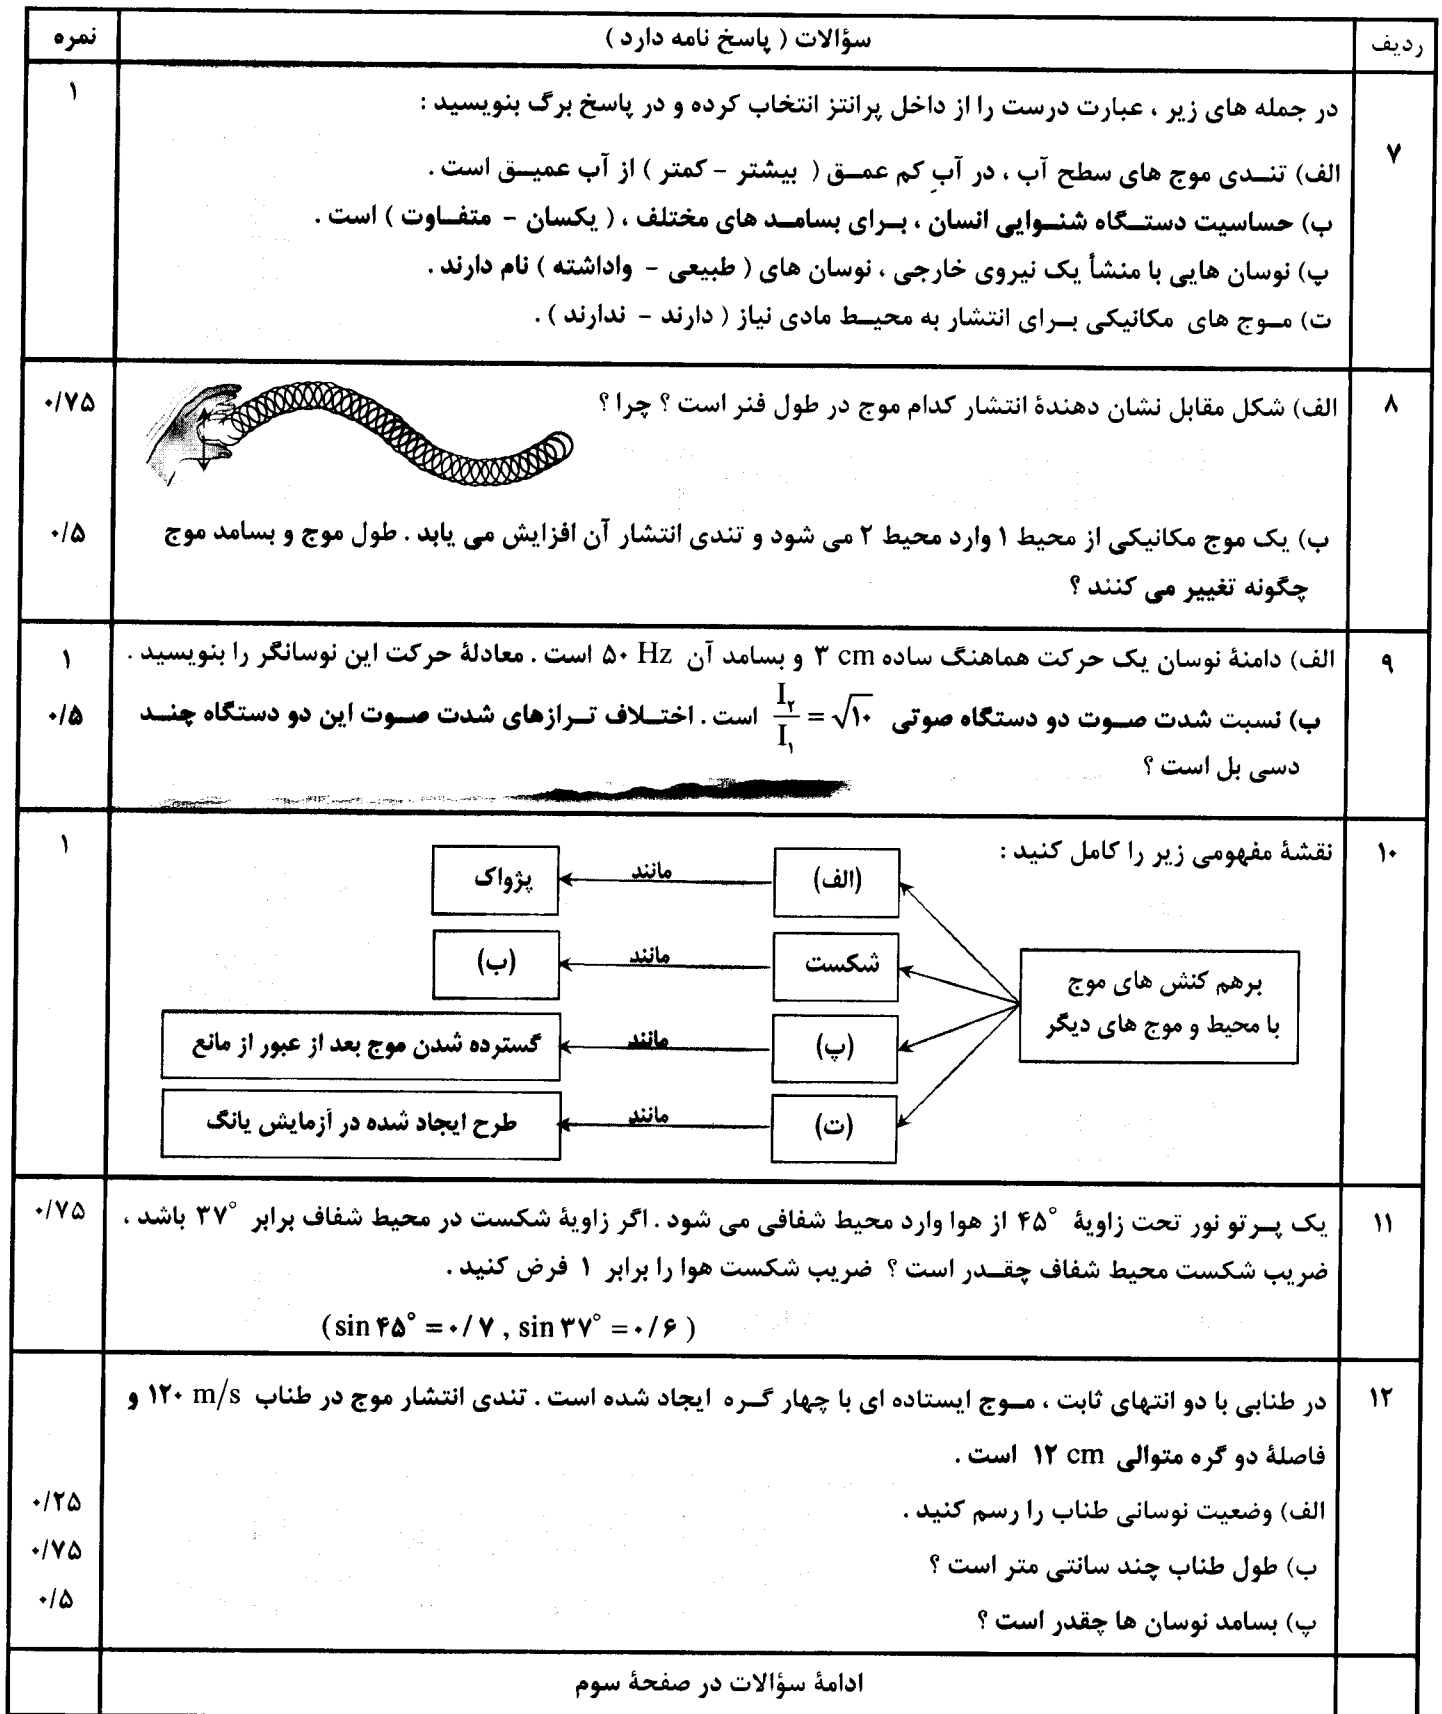 ردیف	سؤالات ( پاسخ نامه دارد )	نمره
۷	در جمله های زیر ، عبارت درست را از داخل پرانتز انتخاب کرده و در پاسخ برگ بنویسید :	۱
الف) تندی موج های سطح آب ، در آب کم عمق ( بیشتر - کمتر ) از آب عمیق است .
ب) حساسیت دستگاه شنوایی انسان ، برای بسامد های مختلف ، ( یکسان - متفاوت ) است .
پ) نوسان هایی با منشأ یک نیروی خارجی ، نوسان های ( طبیعی - واداشته ) نام دارند .
ت) موج های مکانیکی برای انتشار به محیط مادی نیاز ( دارند - ندارند ) .
۸	الف) شکل مقابل نشان دهندۀ انتشار کدام موج در طول فنر است ؟ چرا ؟	۰/۷۵
ب) یک موج مکانیکی از محیط ۱ وارد محیط ۲ می شود و تندی انتشار آن افزایش می یابد . طول موج و بسامد موج	۰/۵
چگونه تغییر می کنند ؟
۹	الف) دامنۀ نوسان یک حرکت هماهنگ ساده ۳ cm و بسامد آن ۵۰ Hz است . معادلۀ حرکت این نوسانگر را بنویسید .	۱
ب) نسبت شدت صوت دو دستگاه صوتی I₂/I₁ = √۱۰ است . اختلاف ترازهای شدت صوت این دو دستگاه چند	۰/۵
دسی بل است ؟
۱۰	نقشۀ مفهومی زیر را کامل کنید :	۱
(الف) مانند پژواک
شکست مانند (ب)
برهم کنش های موج
با محیط و موج های دیگر
(پ) مانند گسترده شدن موج بعد از عبور از مانع
(ت) مانند طرح ایجاد شده در آزمایش یانگ
۱۱	یک پرتو نور تحت زاویۀ ۴۵° از هوا وارد محیط شفافی می شود . اگر زاویۀ شکست در محیط شفاف برابر ۳۷° باشد ،	۰/۷۵
ضریب شکست محیط شفاف چقدر است ؟ ضریب شکست هوا را برابر ۱ فرض کنید .
(sin ۴۵° = ۰/۷ , sin ۳۷° = ۰/۶ )
۱۲	در طنابی با دو انتهای ثابت ، موج ایستاده ای با چهار گره ایجاد شده است . تندی انتشار موج در طناب ۱۲۰ m/s و
فاصلۀ دو گره متوالی ۱۲ cm است .
الف) وضعیت نوسانی طناب را رسم کنید .	۰/۲۵
ب) طول طناب چند سانتی متر است ؟	۰/۷۵
پ) بسامد نوسان ها چقدر است ؟	۰/۵
ادامۀ سؤالات در صفحۀ سوم